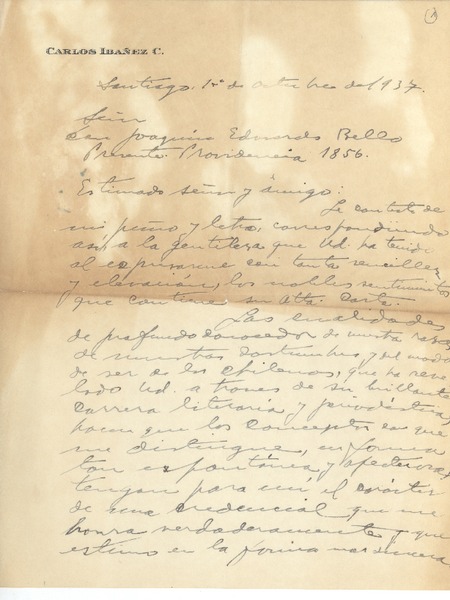 (1)
CARLOS IBAÑEZ C.
Santiago, 1º de octubre de 1937.
Señor
don Joaquín Edwards Bello
Presente. Providencia 1856.
Estimado señor y amigo:
Le contesto de
mi puño y letra, correspondiendo
así a la gentileza que Ud. ha tenido
al expresarme con tanta sencillez
y elevación, los nobles sentimientos
que contiene su atta. carta.
Las cualidades
de profundo conocedor de nuestra raza,
de nuestras costumbres y del modo
de ser de los chilenos, que ha reve
lado Ud. a traves de su brillante
carrera literaria y periodística,
hacen que los conceptos con que
me distingue, en forma
tan espontánea y afectuosa,
tengan para mí el carácter
de una credencial que me
honra verdaderamente y que
estimo en la forma mas sincera